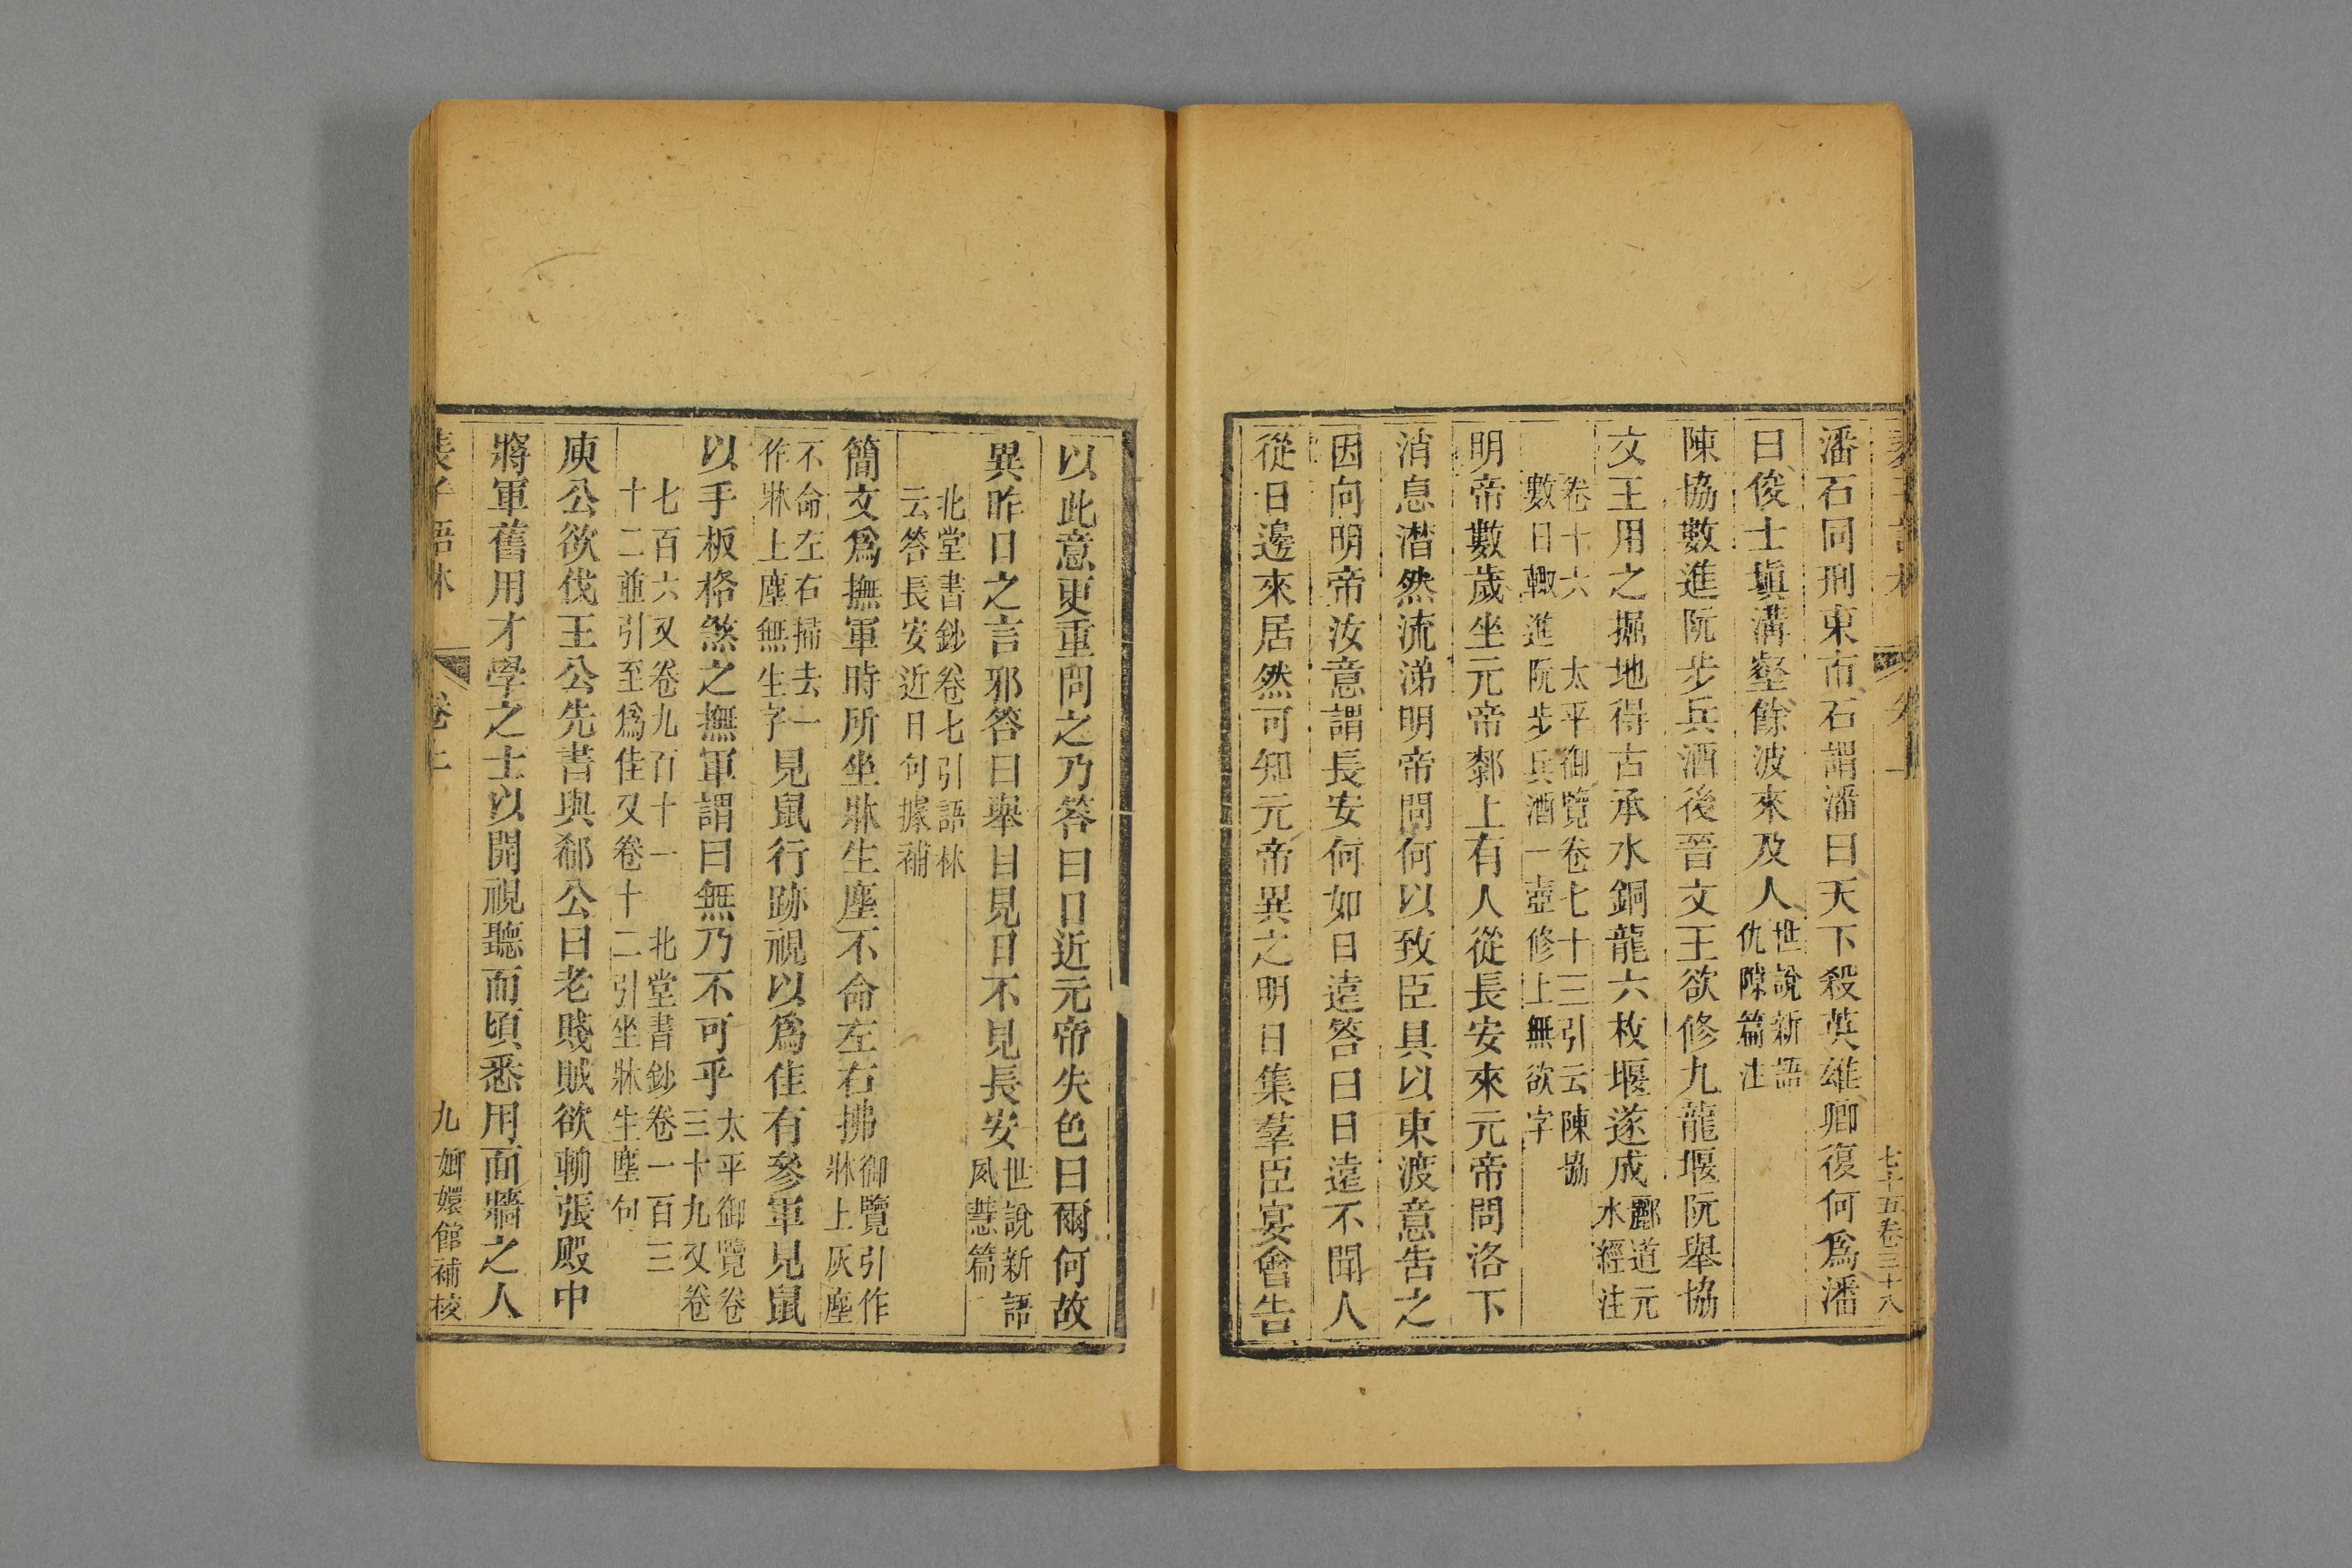 裴子語林 卷上 七十五卷三十八
潘石同刑東市石謂潘曰天下殺英雄卿復何爲潘
曰俊士塡溝壑餘波來及人世說新語
仇隟篇注
陳協數進阮步兵酒後晉文王欲修九龍堰阮舉協
文王用之掘地得古承水銅龍六枚堰遂成酈道元
水經注
卷十六 太平御覽卷七十三引云陳協
數日輙進阮步兵酒一壺修上無欲字
明帝數歲坐元帝䣛上有人從長安來元帝問洛下
消息潜然流涕明帝問何以致臣具以東渡意告之
因向明帝汝意謂長安何如日遠答曰日遠不聞人
從日邊來居然可知元帝異之明日集羣臣宴會告
以此意更重問之乃答曰日近元帝失色曰爾何故
異昨日之言邪答曰舉目見日不見長安世說新語
夙慧篇
北堂書鈔卷七引語林
云答長安近日句據補
簡文爲撫軍時所坐牀生塵不命左右拂御覽引作
牀上灰塵
不命左右掃去一
作牀上塵無生字見鼠行跡視以爲佳有參軍見鼠
以手板格煞之撫軍謂曰無乃不可乎太平御覽卷
三十九又卷
七百六又卷九百十一 北堂書鈔卷一百三
十二並引至爲佳又卷十二引坐牀生塵句
庾公欲伐王公先書與郗公曰老賤賊欲輈張殿中
將軍舊用才學之士以開視聽而頃悉用面牆之人
裴子語林 卷上 九 嫏嬛館補校